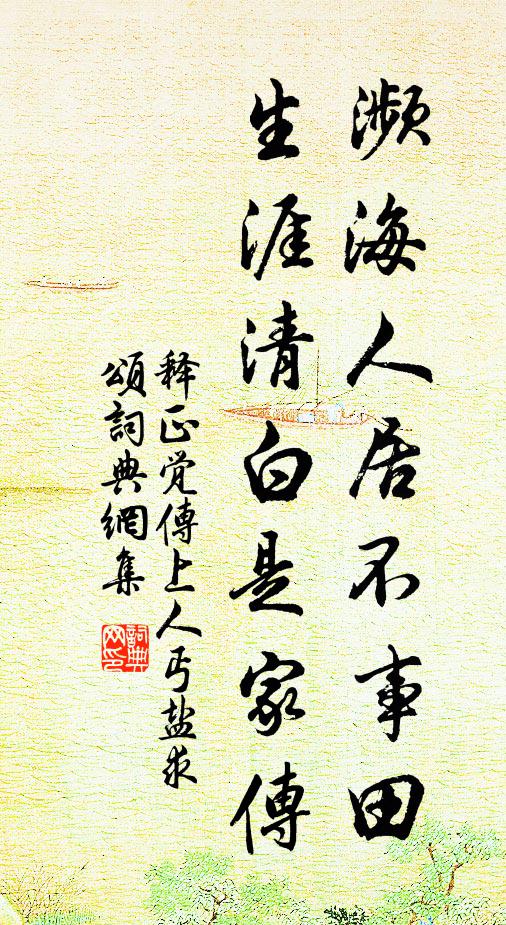 瀕海人居不事田
生涯清白是家傳
释正觉傳上人丐盐求
頌詞典網集
詞典
网印